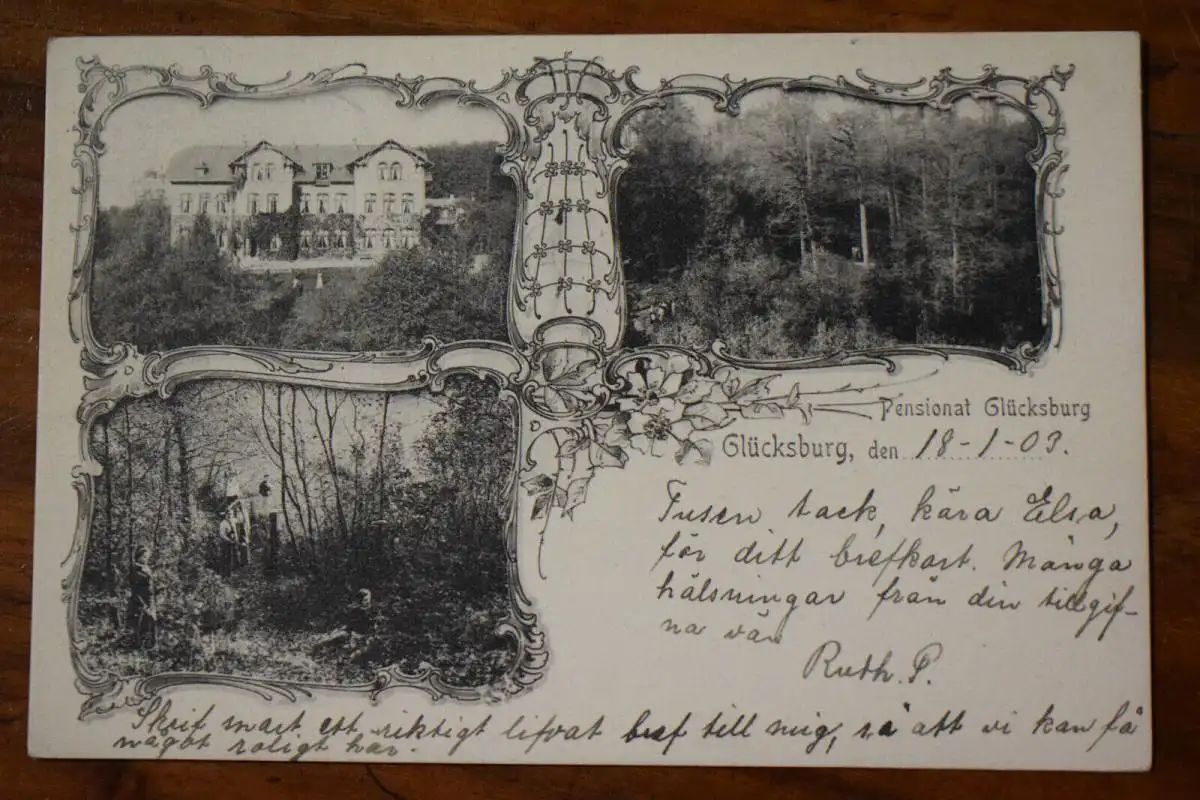 Pensionat Glücksburg
Glücksburg, den 18-1-03.
Tusen tack, kära Elsa,
för ditt brefkort. Många
hälsningar från din tillgif-
na vän
Ruth. P.
Skrif snart ett riktigt lifvat bref till mig, så att vi kan få
något roligt här.